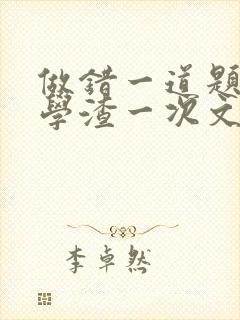 做錯一道題
學渣一次文
李卓然